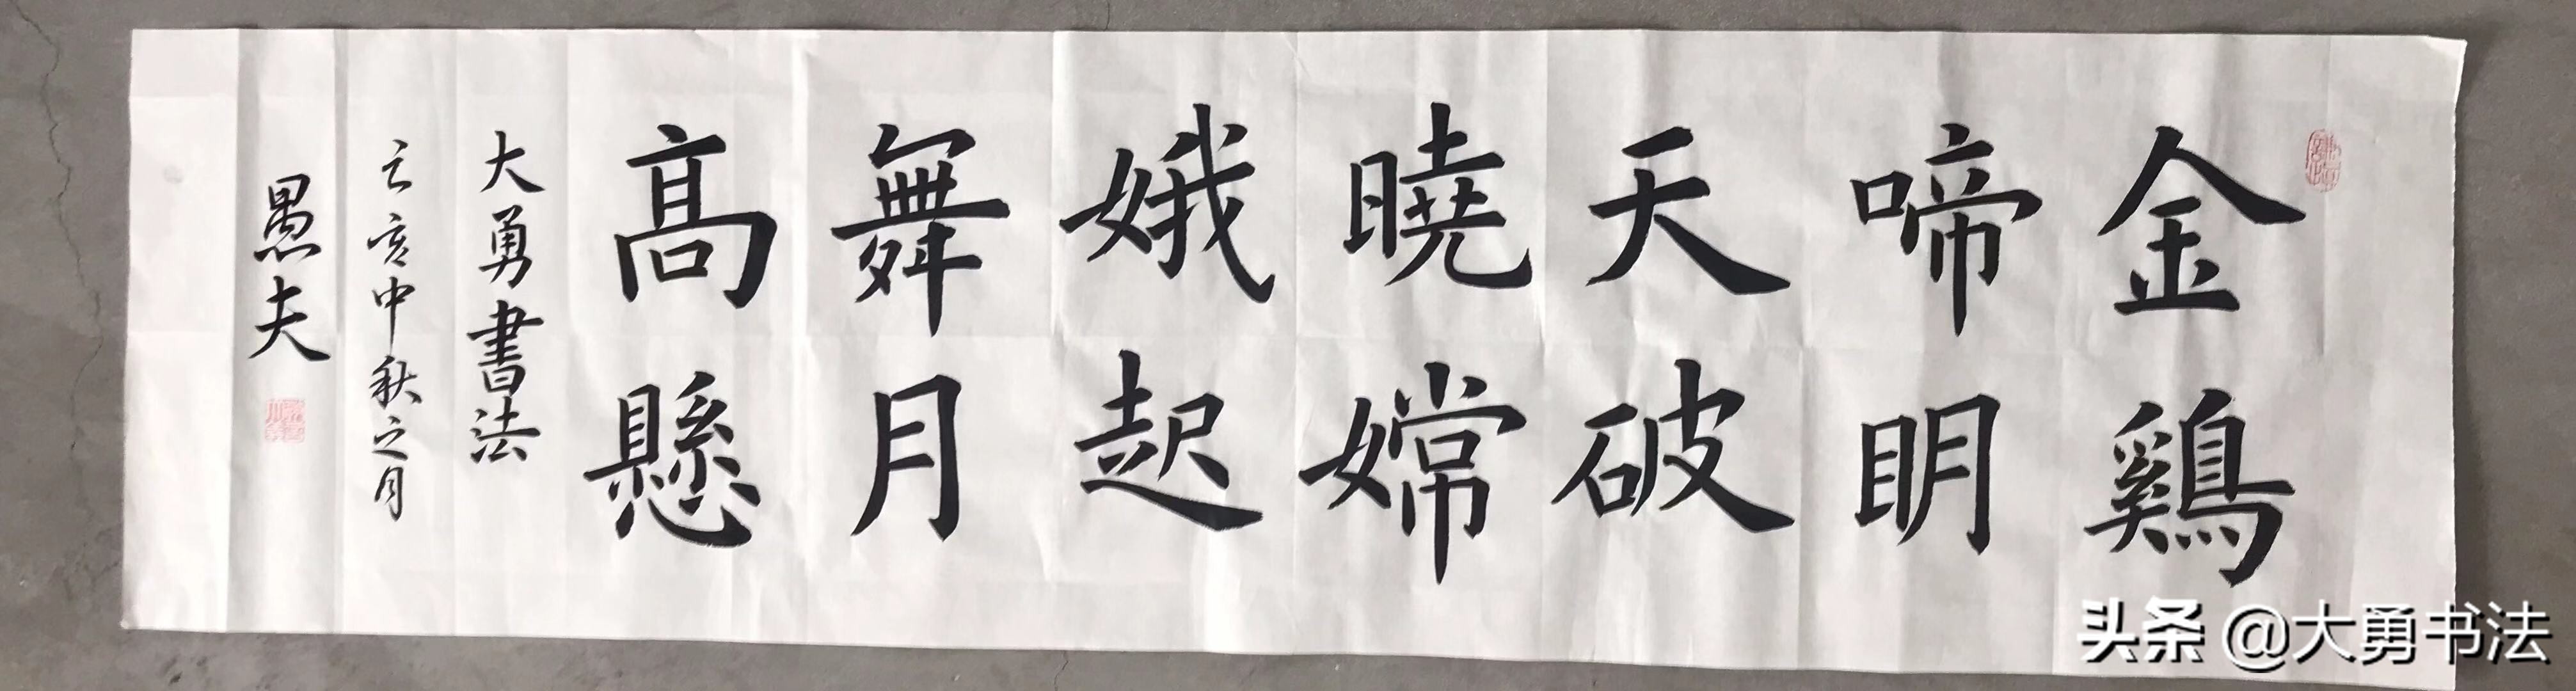 金鷄
啼明
天破
曉嫦
娥起
舞月
高懸
大勇書法
己亥中秋之月
愚夫
头条 @大勇书法